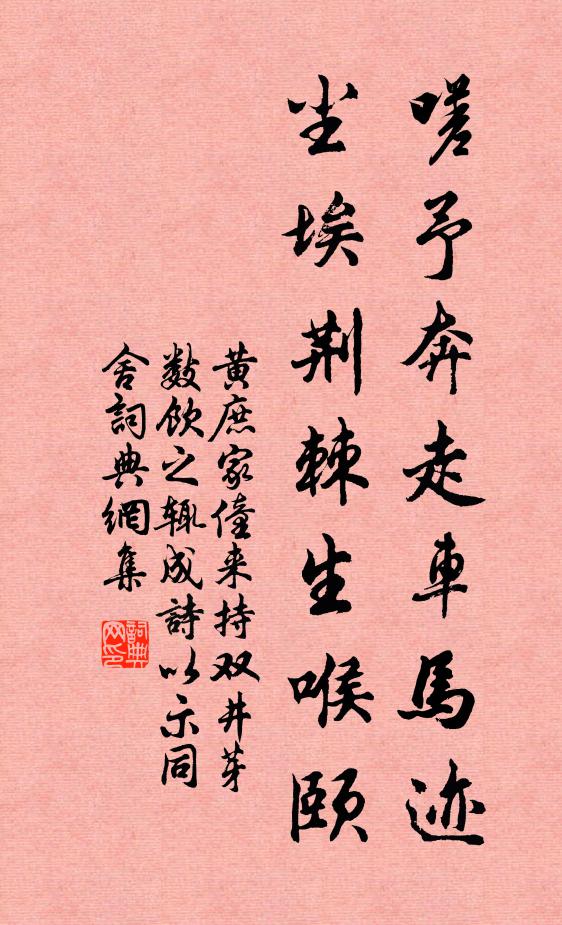 嗟予奔走車馬迹
尘埃荆棘生喉頤
黄庶家僮来持双井芽
数飲之輙成詩以示同
舍詞典網集
詞典
网印